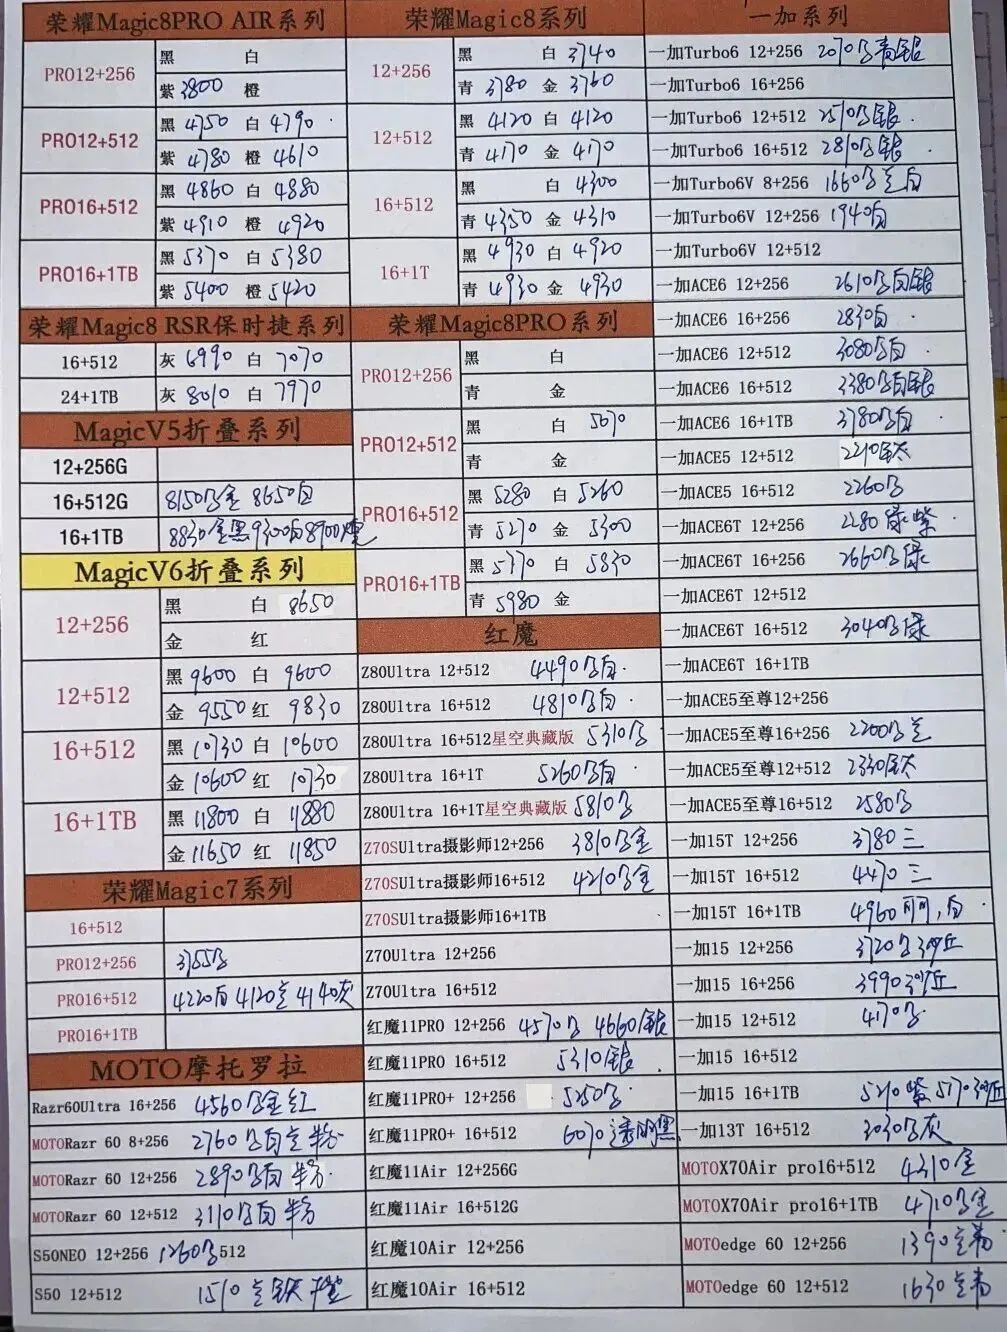 荣耀Magic8PRO AIR系列
PRO12+256
黑 白
紫 3800 橙
PRO12+512
黑 4750 白 4790
紫 4780 橙 4610
PRO16+512
黑 4860 白 4880
紫 4910 橙 4920
PRO16+1TB
黑 5370 白 5380
紫 5400 橙 5420
荣耀Magic8 RSR保时捷系列
16+512 灰 6990 白 7070
24+1TB 灰 8010 白 7970
MagicV5折叠系列
12+256G
16+512G 8150 金 8650白
16+1TB 8830金黑9300白8900
MagicV6折叠系列
12+256
黑 白 8650
金 红
12+512
黑 9600 白 9600
金 9550 红 9830
16+512
黑 10730 白 10600
金 10600 红 10730
16+1TB
黑 11800 白 11880
金 11650 红 11850
荣耀Magic7系列
16+512
PRO12+256 3755
PRO16+512 4220白 4120 4140灰
PRO16+1TB
MOTO摩托罗拉
Razr60Ultra 16+256 4560 金 红
MOTORazr 60 8+256 2760 白 粉
MOTORazr 60 12+256 2890 白 粉
MOTORazr 60 12+512 3110 白 粉
S50NEO 12+256 1260 512
S50 12+512 1510
荣耀Magic8系列
12+256
黑 白 3740
青 3780 金 3760
12+512
黑 4120 白 4120
青 4170 金 4170
16+512
黑 白 4300
青 4350 金 4310
16+1T
黑 4930 白 4920
青 4930 金 4930
荣耀Magic8PRO系列
PRO12+256
黑 白
青 金
PRO12+512
黑 白 5070
青 金
PRO16+512
黑 5280 白 5260
青 5270 金 5300
PRO16+1TB
黑 5770 白 5830
青 5980 金
红魔
Z80Ultra 12+512 4490 白
Z80Ultra 16+512 4810 白
Z80Ultra 16+512星空典藏版 5310
Z80Ultra 16+1T 5260 白
Z80Ultra 16+1T星空典藏版 5810
Z70SUltra摄影师12+256 3810 金
Z70SUltra摄影师16+512 4210 金
Z70SUltra摄影师16+1TB
Z70Ultra 12+256
Z70Ultra 16+512
红魔11PRO 12+256 4570 4660银
红魔11PRO 16+512 5310银
红魔11PRO+ 12+256 5250
红魔11PRO+ 16+512 6070透明黑
红魔11Air 12+256G
红魔11Air 16+512G
红魔10Air 12+256
红魔10Air 16+512
一加系列
一加Turbo6 12+256 2070 青银
一加Turbo6 16+256
一加Turbo6 12+512 2570 银
一加Turbo6 16+512 2810 银
一加Turbo6V 8+256 1660 白
一加Turbo6V 12+256 1940白
一加Turbo6V 12+512
一加ACE6 12+256 2610 白银
一加ACE6 16+256 2830白
一加ACE6 12+512 3080 白
一加ACE6 16+512 3380 白银
一加ACE6 16+1TB 3780 白
一加ACE5 12+512 2210钛
一加ACE5 16+512 2260
一加ACE6T 12+256 2280 绿紫
一加ACE6T 16+256 2660 绿
一加ACE6T 12+512
一加ACE6T 16+512 3040 绿
一加ACE6T 16+1TB
一加ACE5至尊12+256
一加ACE5至尊16+256 2200
一加ACE5至尊12+512 2330钛
一加ACE5至尊16+512 2580
一加15T 12+256 3780 三
一加15T 16+512 4470 三
一加15T 16+1TB 4960 可可,白
一加15 12+256 3720 沙丘
一加15 16+256 3990沙丘
一加15 12+512 4170
一加15 16+512
一加15 16+1TB 5210 紫 5170沙丘
一加13T 16+512 3030 灰
MOTOX70Air pro16+512 4310 金
MOTOX70Air pro16+1TB 4710 金
MOTOedge 60 12+256 1390
MOTOedge 60 12+512 1630